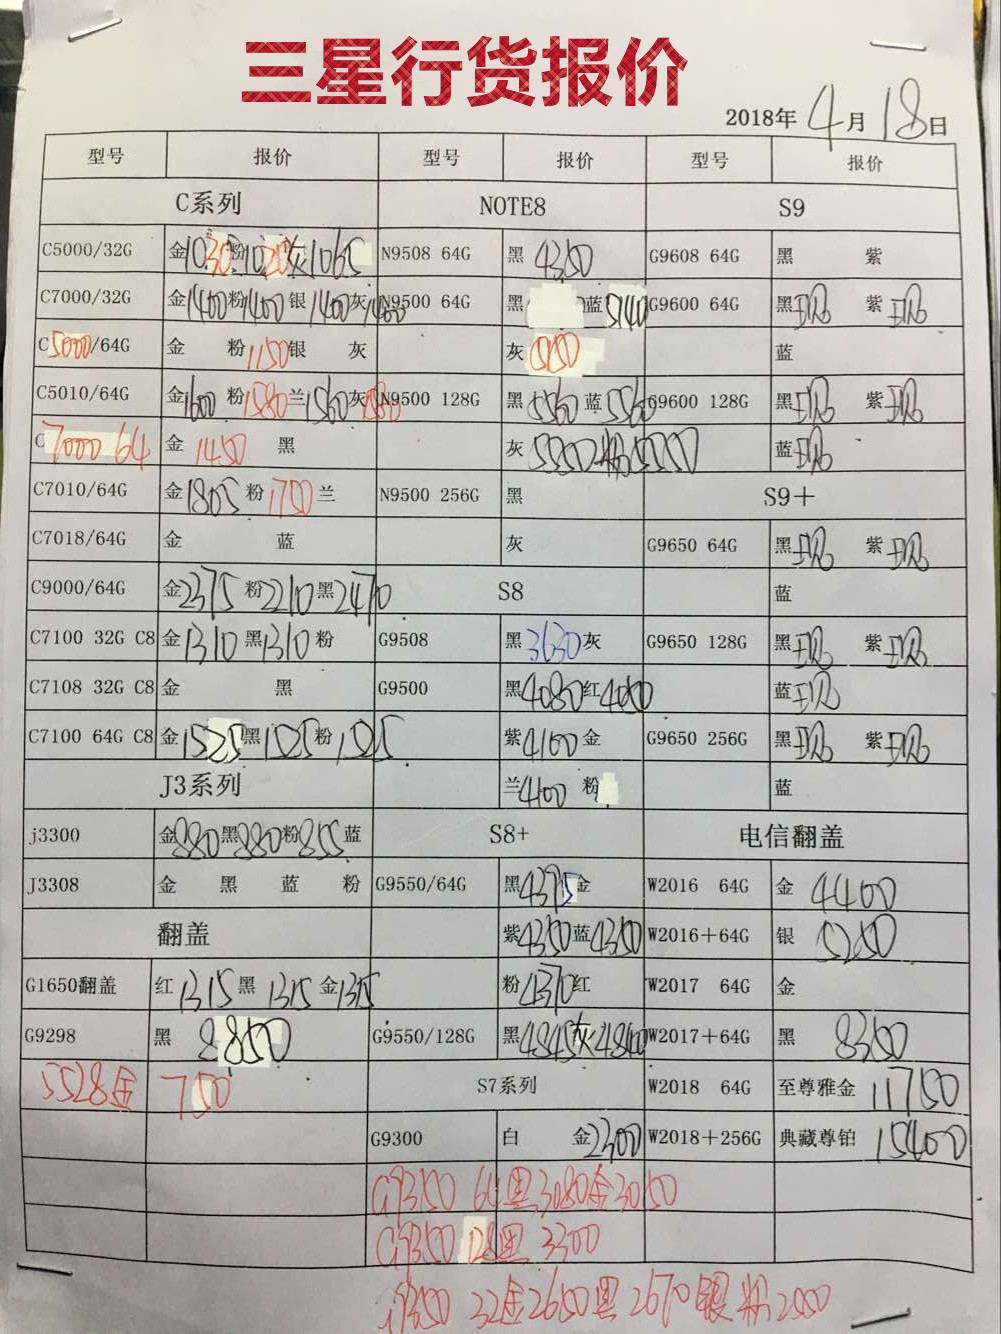 三星行货报价
2018年4月18日
型号 报价 型号 报价 型号 报价
C系列 NOTE8 S9
C5000/32G 金1030粉1020灰1065 N9508 64G 黑 4350 G9608 64G 黑 紫
C7000/32G 金1400粉1400银1400灰1400 N9500 64G 黑 蓝5140 G9600 64G 黑 紫
C5000/64G 金 粉1150银 灰 灰5150 蓝
C5010/64G 金1600粉1580兰1560灰 N9500 128G 黑5560蓝5560 G9600 128G 黑 紫
C7000 64 金1450 黑 灰 蓝
C7010/64G 金1805粉1750兰 N9500 256G 黑 S9+
C7018/64G 金 蓝 灰 G9650 64G 黑 紫
C9000/64G 金2375粉2210黑2470 S8 蓝
C7100 32G C8 金1310黑1310粉 G9508 黑3630灰 G9650 128G 黑 紫
C7108 32G C8 金 黑 G9500 黑4080红 蓝
C7100 64G C8 金1525黑1525粉1525 紫4100金 G9650 256G 黑 紫
J3系列 兰4100粉 蓝
j3300 金880黑880粉855蓝 S8+ 电信翻盖
J3308 金 黑 蓝 粉 G9550/64G 黑4375金 W2016 64G 金 4400
翻盖 紫4350蓝4350 W2016+64G 银 5250
G1650翻盖 红1315黑1315金1315 粉4370红 W2017 64G 金
G9298 黑 8850 G9550/128G 黑4845灰4840 W2017+64G 黑 8350
5528金 750 S7系列 W2018 64G 至尊雅金 11750
G9300 白 金2300 W2018+256G 典藏尊铂 15400
G9350 64黑3080金3050
G9350 128黑 3300
G9350 32金2650黑2670银粉2550